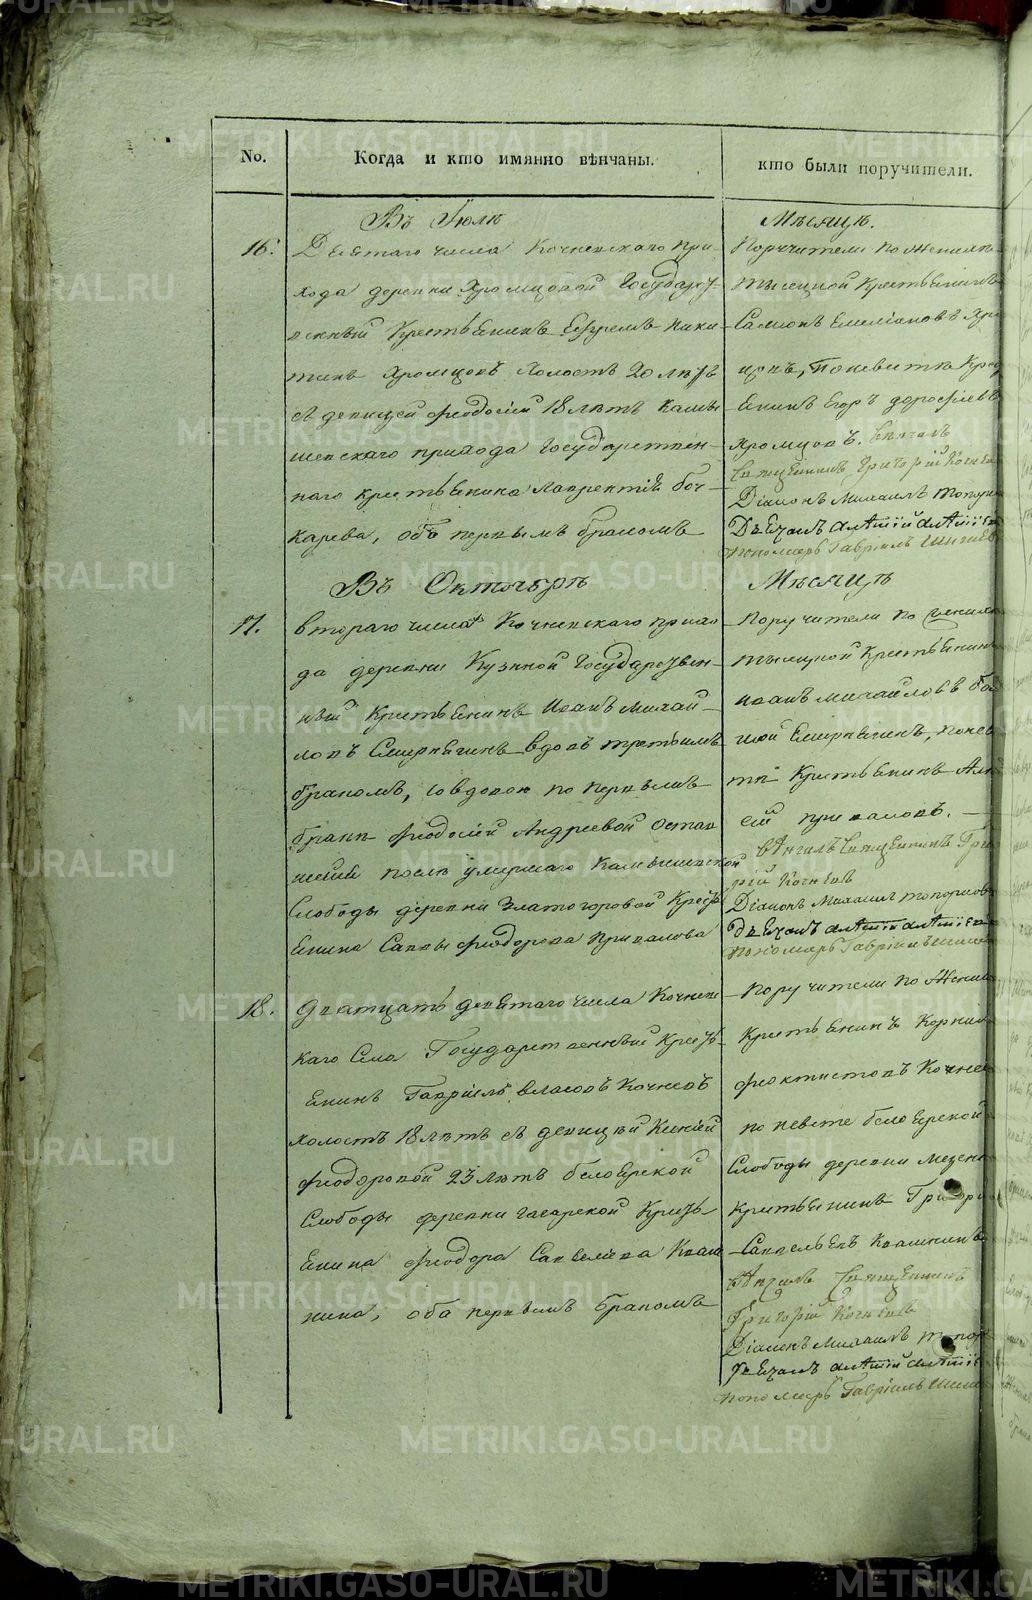 No.
Когда и кто имянно вѣнчаны.
кто были поручители.
Въ Іюлѣ
Мѣсяцѣ.
16.
Девятаго числа Кочневскаго при-
хода деревни Хромцовой Государст-
венный Крестьянинъ Ефремъ Ники-
тинъ Хромцовъ Холостъ 20 лѣтъ
съ девицей Феодосіей 18 лѣтъ Камы-
шевскаго прихода Государствен-
наго крестьянина Лаврентія Боч-
карева, оба первымъ бракомъ
Поручители по Женихѣ
тысяцкой Крестьянинъ
Самсонъ Емеліановъ Хро
цовъ, по невестѣ Крес
янинъ Егоръ Дорофѣевъ
Хромцовъ. Венчалъ
Священникъ Григорій Кочнев
Діаконъ Михаилъ Топорк
Дьячокъ
пономарь Гавріилъ
Въ Октябрѣ
Мѣсяцѣ
17.
втораго числа Кочневскаго прихо
да деревни Кузиной Государствен-
ный Крестьянинъ Иванъ Михай-
ловъ Смирнягинъ вдовъ третьимъ
бракомъ, со вдовою по первымъ
бракѣ Феодосіей Андреевой остав
шейй послѣ умершаго Камышевской
Слободы деревни Златогоровой Кресть
янина Саввы Феодорова Привалова
Поручители по Жених
тысяцкой Крестьянинъ
Иванъ Михайловъ бол
шой Смирнягинъ, по нев
тѣ Крестьянинъ Алек
сѣй Приваловъ.
вѣнчалъ Священникъ Гри
рій Кочневъ
Діаконъ Михаилъ Топорков
Дьячокъ
пономарь Гавріилъ
18.
Дватцать девятаго числа Кочневс
каго Села Государственный Кресть-
янинъ Гавріилъ Власовъ Кочневъ
холостъ 18 лѣтъ съ девицей Ксеніей
Феодоровой 23 лѣтъ Белоярской
Слободы деревни Гагарской Кресть
янина Феодора Савельева Кваш
нина, оба первымъ бракомъ
Поручители по Жених
Крестьянинъ Корнил
Феоктистовъ Кочнев
по невесте Белоярской
Слободы деревни Мезен
Крестьянинъ Григори
Савельевъ Квашнинъ
вѣнчалъ Священникъ
Григорій Кочневъ
Діаконъ Михаилъ Топор
Дьячокъ
пономарь Гавріилъ
METRIKI.GASO-URAL.RU